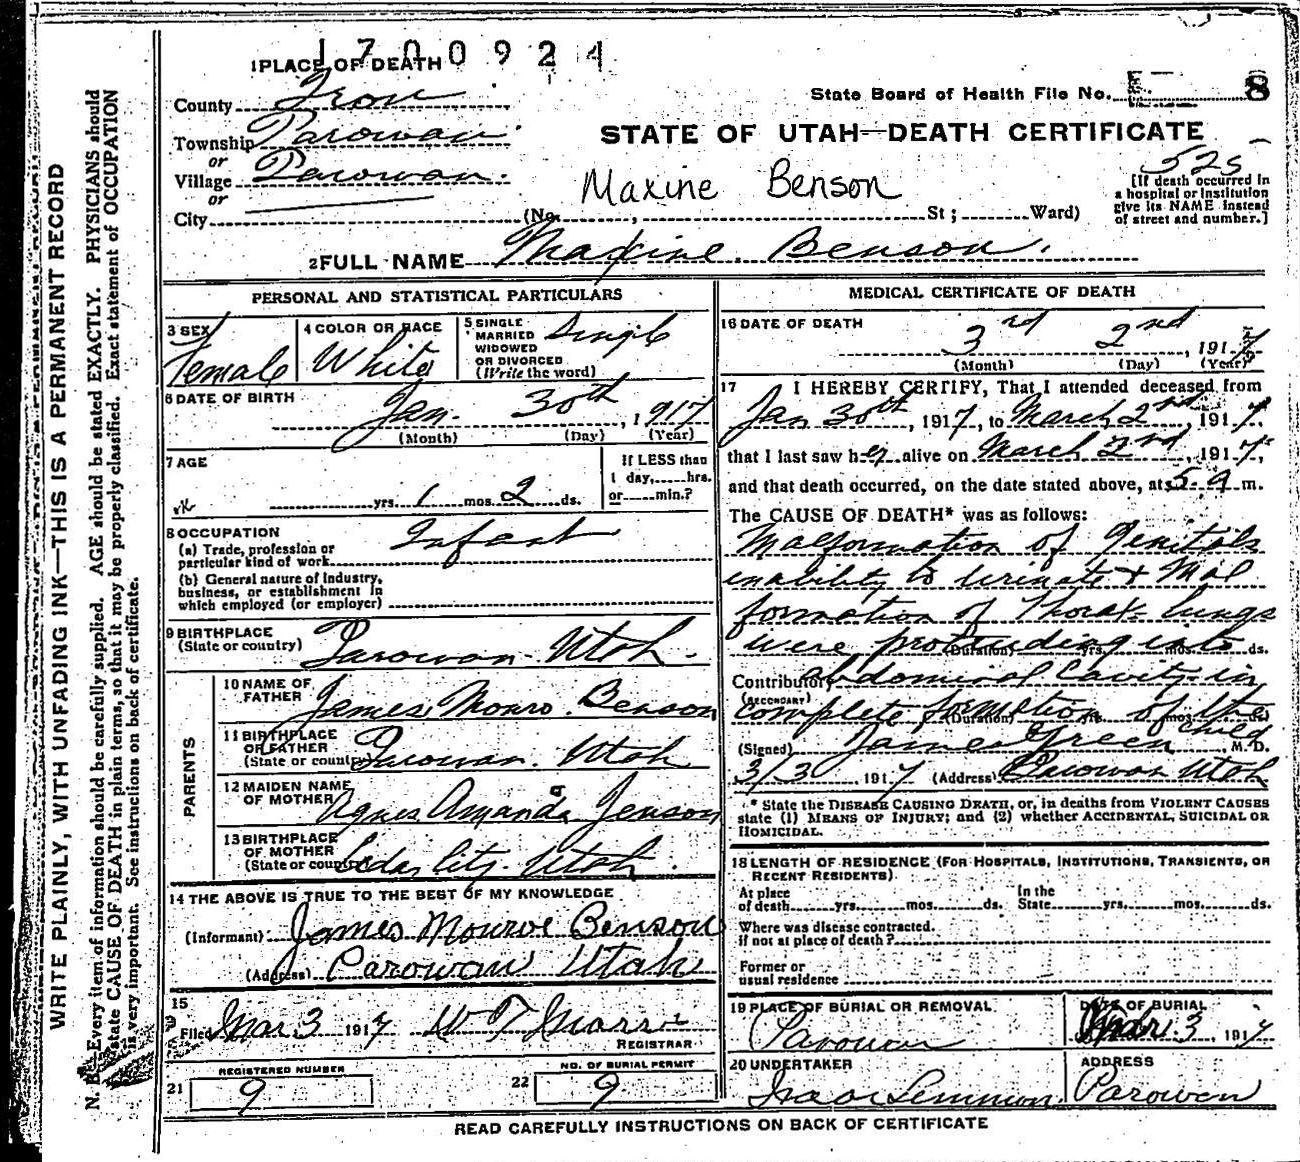 1700924
1 PLACE OF DEATH
County Iron
State Board of Health File No. 8
Township Parowan
STATE OF UTAH—DEATH CERTIFICATE
or
Village Parowan.
or
525
[If death occurred in
a hospital or institution
give its NAME instead
of street and number.]
Maxine Benson
City (No. , St; Ward)
2 FULL NAME Maxine Benson.
PERSONAL AND STATISTICAL PARTICULARS
3 SEX Female
4 COLOR OR RACE White
5 SINGLE
MARRIED
WIDOWED
OR DIVORCED
(Write the word) Single
6 DATE OF BIRTH
Jan. 30th, 1917
(Month) (Day) (Year)
7 AGE
yrs. 1 mos. 2 ds.
If LESS than
1 day, hrs.
or min.?
8 OCCUPATION
(a) Trade, profession or
particular kind of work Infant
(b) General nature of Industry,
business, or establishment in
which employed (or employer)
9 BIRTHPLACE
(State or country) Parowan Utah.
PARENTS
10 NAME OF
FATHER James Monro Benson
11 BIRTHPLACE
OF FATHER
(State or country) Parowan. Utah
12 MAIDEN NAME
OF MOTHER Agnes Amanda Jenson
13 BIRTHPLACE
OF MOTHER
(State or country) Cedar City. Utah.
14 THE ABOVE IS TRUE TO THE BEST OF MY KNOWLEDGE
(Informant) James Monroe Benson
(Address) Parowan Utah
15
Filed Mar, 3 1917
REGISTRAR
REGISTERED NUMBER
21 9
NO. OF BURIAL PERMIT
22 9
MEDICAL CERTIFICATE OF DEATH
16 DATE OF DEATH
3rd 2nd, 1917
(Month) (Day) (Year)
17 I HEREBY CERTIFY, That I attended deceased from
Jan 30th, 1917, to March 2nd, 1917,
that I last saw her alive on March 2nd, 1917,
and that death occurred, on the date stated above, at 5 a m.
The CAUSE OF DEATH* was as follows:
Malformation of Genitals
inability to Urinate & Mal
formation of Thorax lungs
were protruding into
(Duration) yrs. mos. ds.
Contributory abdominal Cavity in
(SECONDARY)
complete formation of the
(Duration) yrs. mos. ds.
child
(Signed) James Green, M.D.
3/3 1917 (Address) Parowan Utah
* State the DISEASE CAUSING DEATH, or, in deaths from VIOLENT CAUSES
state (1) MEANS OF INJURY; and (2) whether ACCIDENTAL, SUICIDAL OR
HOMICIDAL.
18 LENGTH OF RESIDENCE (FOR HOSPITALS, INSTITUTIONS, TRANSIENTS, OR
RECENT RESIDENTS).
At place In the
of death yrs. mos. ds. State yrs. mos. ds.
Where was disease contracted.
if not at place of death?
Former or
usual residence
19 PLACE OF BURIAL OR REMOVAL
Parowan
DATE OF BURIAL
Mar 3, 1917
20 UNDERTAKER
ADDRESS
Parowan
READ CAREFULLY INSTRUCTIONS ON BACK OF CERTIFICATE
WRITE PLAINLY, WITH UNFADING INK—THIS IS A PERMANENT RECORD
N. B. Every item of information should be carefully supplied. AGE should be stated EXACTLY. PHYSICIANS should
state CAUSE OF DEATH in plain terms, so that it may be properly classified. Exact statement of OCCUPATION
is very important. See instructions on back of certificate.